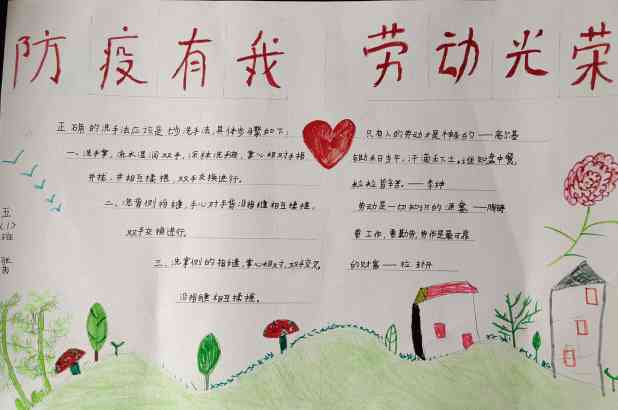 防疫有我 劳动光荣
正确的洗手法应该是七步洗手法,具体步骤如下:
一、洗手掌,流水湿润双手,涂抹洗手液,掌心相对手指
并拢,并相互揉搓,双手交换进行。
二、洗背侧指缝,手心对手背沿指缝相互揉搓,
双手交换进行。
三、洗掌侧的指缝,掌心相对,双手交叉
沿指缝相互揉搓。
只有人的劳动才是神圣的——高尔基
锄禾日当午,汗滴禾下土。谁知盘中餐,
粒粒皆辛苦。——李绅
劳动是一切知识的源泉——陶铸
爱工作,要勤劳,劳作是最可靠
的财富——拉·封丹
五
(1)
班
张